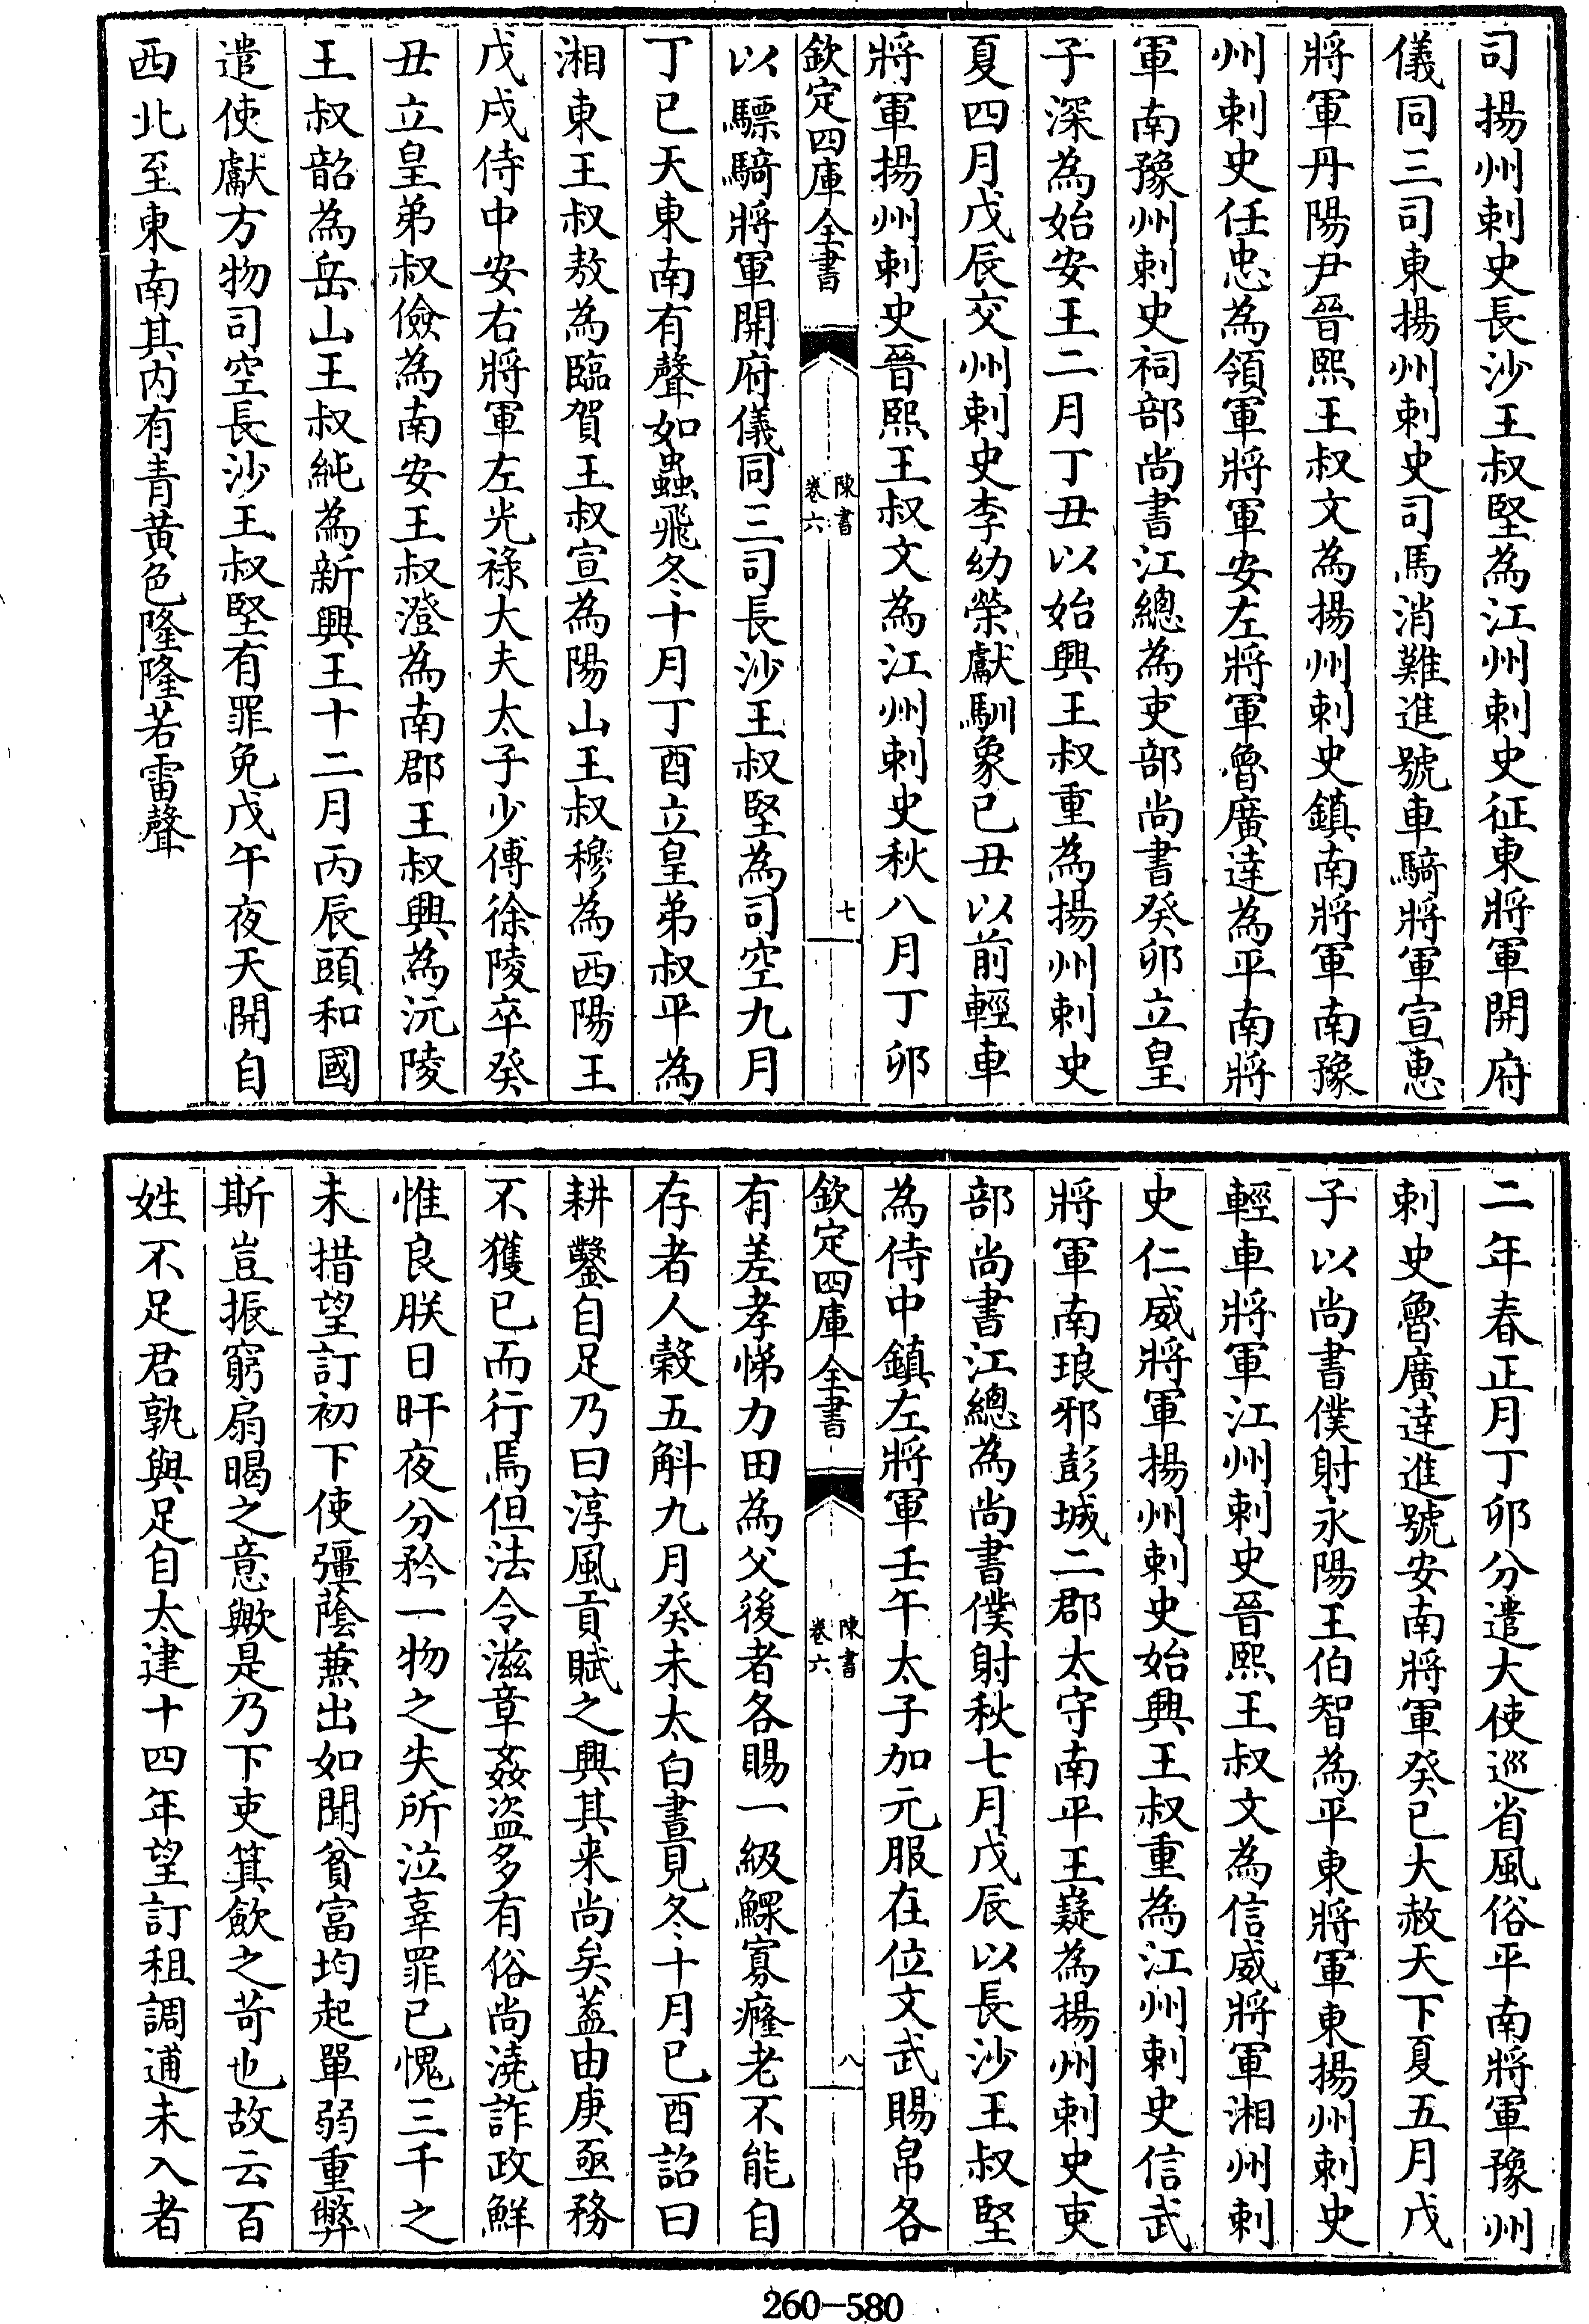 司揚州刺史長沙王叔堅為江州刺史征東將軍開府
儀同三司東揚州刺史司馬消難進號車騎將軍宣惠
將軍丹陽尹晉熙王叔文為揚州刺史鎮南將軍南豫
州刺史任忠為領軍將軍安左將軍魯廣達為平南將
軍南豫州刺史祠部尚書江總為吏部尚書癸卯立皇
子深為始安王二月丁丑以始興王叔重為揚州刺史
夏四月戊辰交州刺史李幼榮獻馴象己丑以前輕車
將軍揚州刺史晉熙王叔文為江州刺史秋八月丁卯
欽定四庫全書
陳書
卷六
七
以驃騎將軍開府儀同三司長沙王叔堅為司空九月
丁巳天東南有聲如蟲飛冬十月丁酉立皇弟叔平為
湘東王叔敖為臨賀王叔宣為陽山王叔穆為西陽王
戊戌侍中安右將軍左光祿大夫太子少傅徐陵卒癸
丑立皇弟叔儉為南安王叔澄為南郡王叔興為沅陵
王叔韶為岳山王叔純為新興王十二月丙辰頭和國
遣使獻方物司空長沙王叔堅有罪免戊午夜天開自
西北至東南其内有青黃色隆隆若雷聲
二年春正月丁卯分遣大使巡省風俗平南將軍豫州
刺史魯廣達進號安南將軍癸巳大赦天下夏五月戊
子以尚書僕射永陽王伯智為平東將軍東揚州刺史
輕車將軍江州刺史晉熙王叔文為信威將軍湘州刺
史仁威將軍揚州刺史始興王叔重為江州刺史信武
將軍南琅邪彭城二郡太守南平王嶷為揚州刺史吏
部尚書江總為尚書僕射秋七月戊辰以長沙王叔堅
為侍中鎮左將軍壬午太子加元服在位文武賜帛各
欽定四庫全書
陳書
卷六
八
有差孝悌力田為父後者各賜一級鰥寡癃老不能自
存者人穀五斛九月癸未太白晝見冬十月己酉詔曰
耕鑿自足乃曰淳風貢賦之興其来尚矣蓋由庚亟務
不獲已而行焉但法令滋章姦盜多有俗尚澆詐政鮮
惟良朕日旰夜分矜一物之失所泣辜罪己愧三千之
未措望訂初下使彊蔭兼出如聞貧富均起單弱重弊
斯豈振窮扇暍之意歟是乃下吏箕斂之苛也故云百
姓不足君孰與足自太建十四年望訂租調逋未入者
260-580